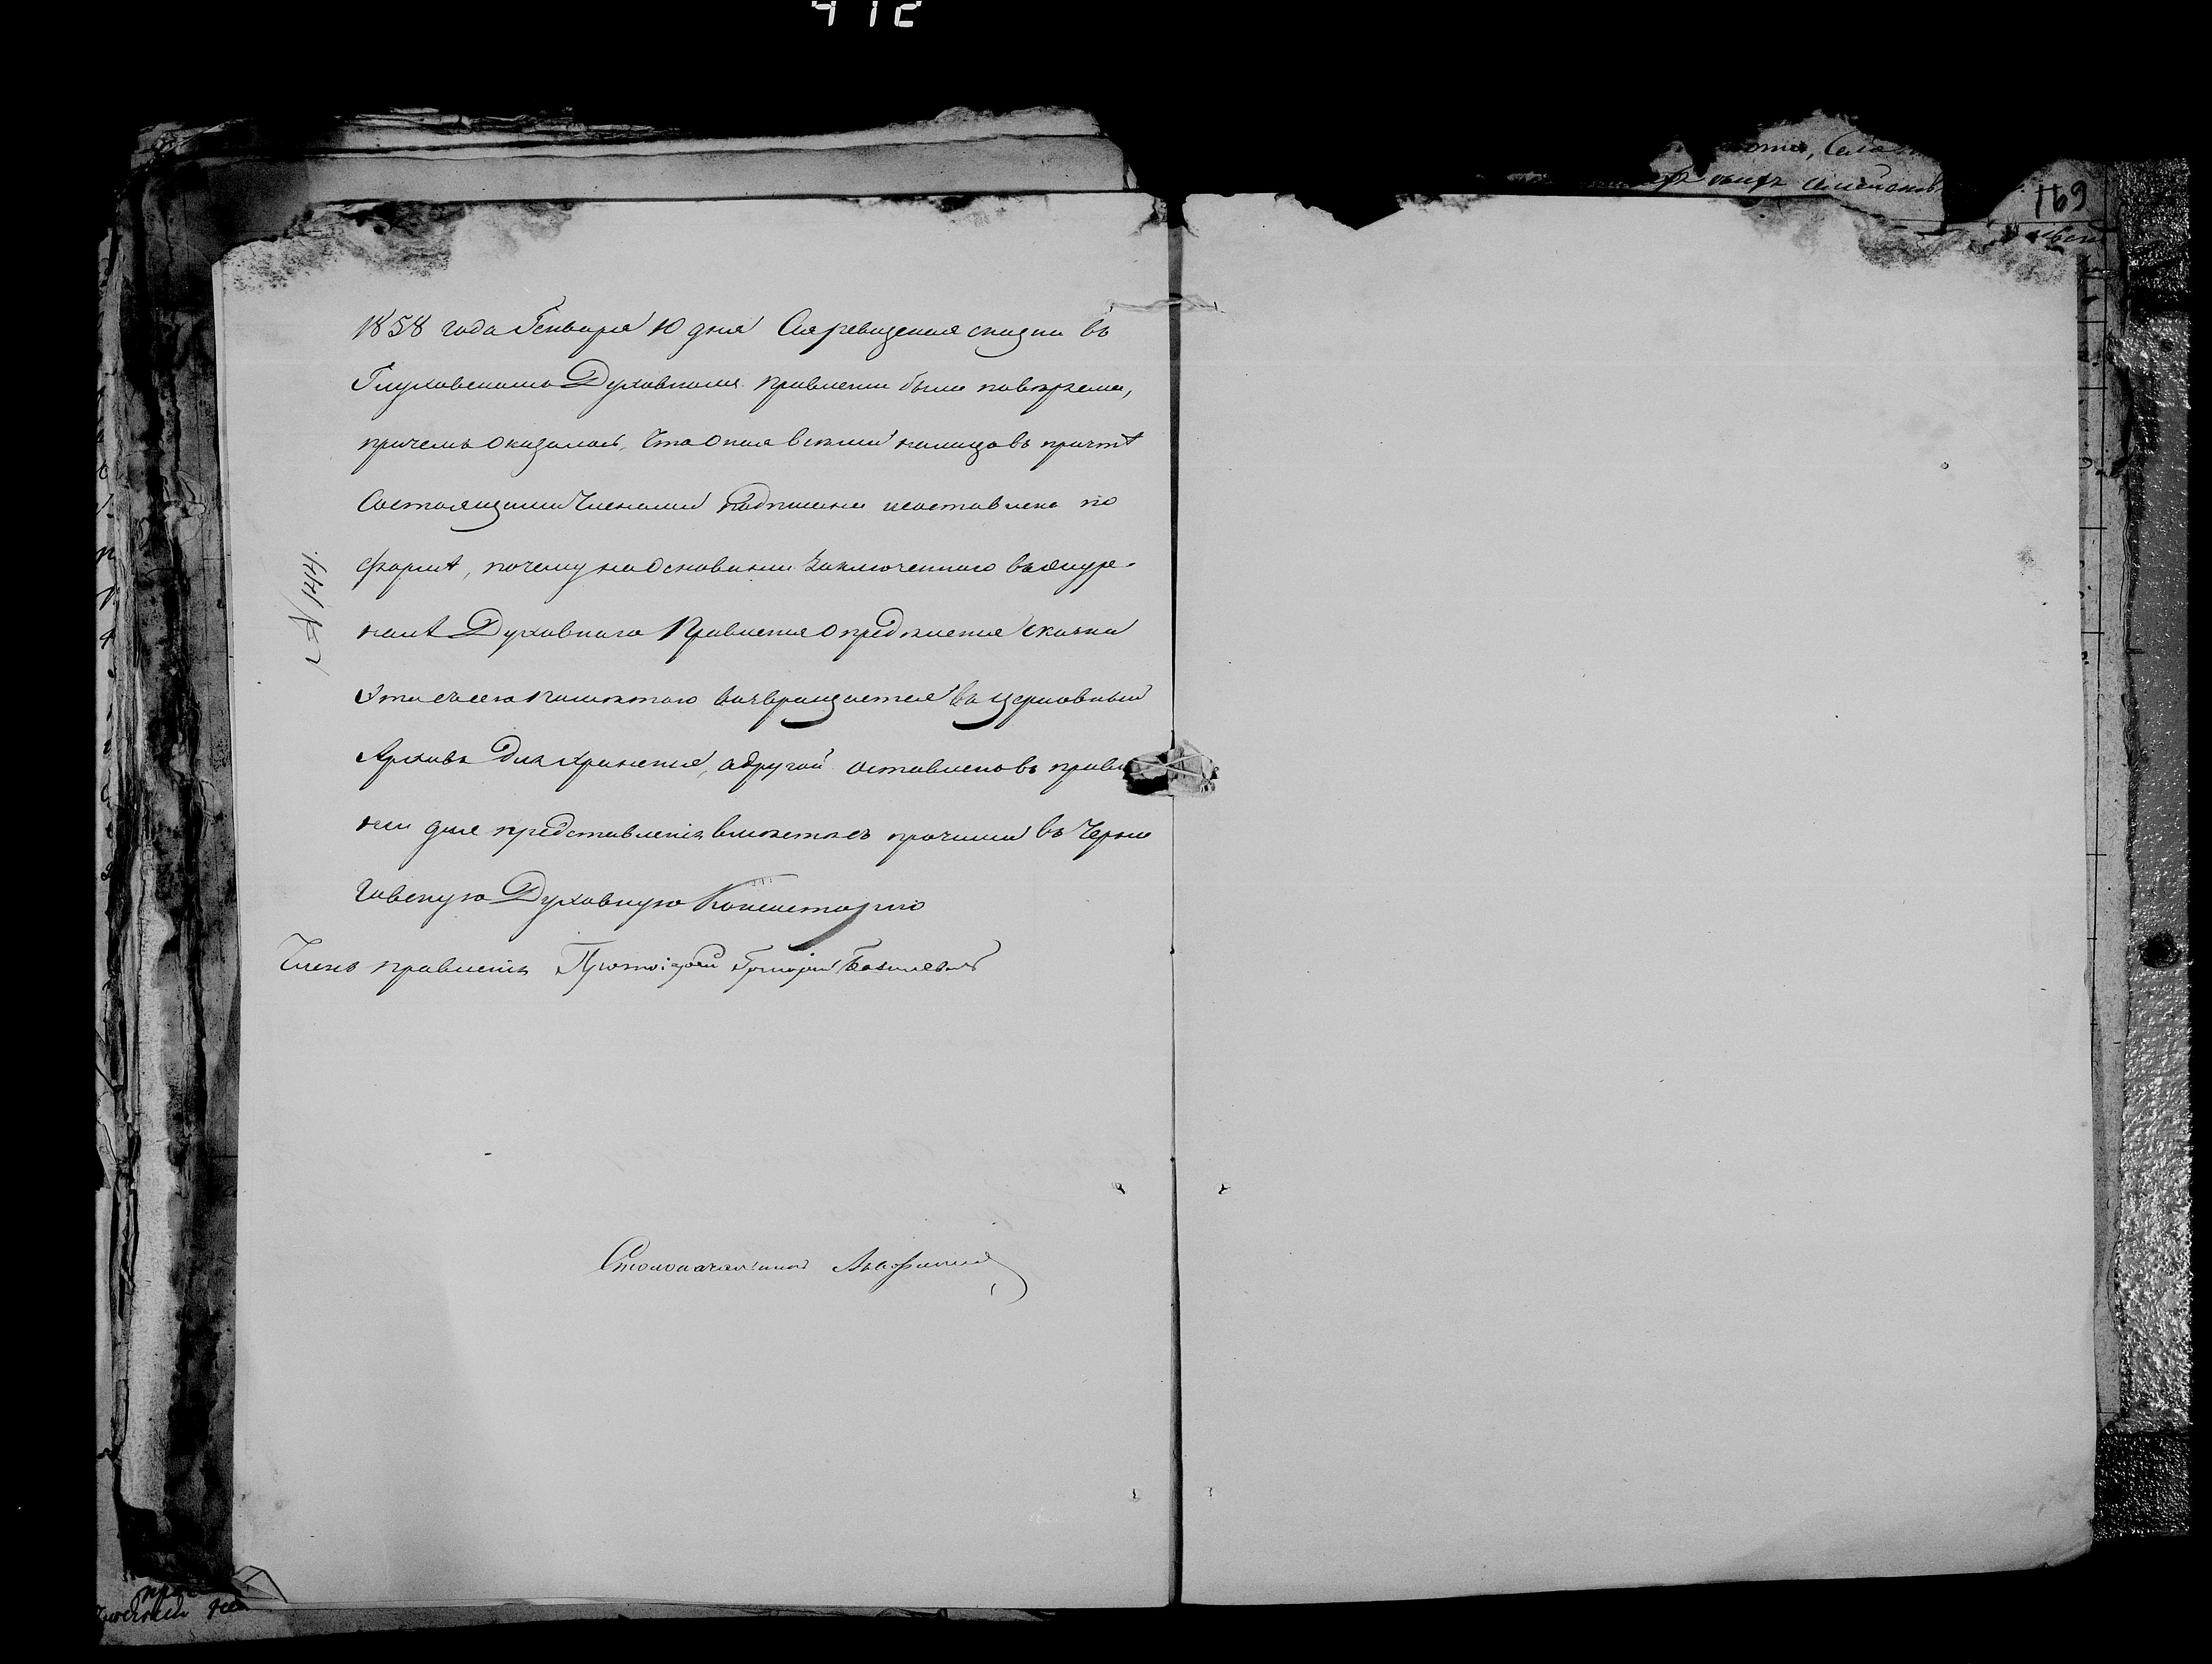 412
169
1858 года Генваря 10 дня Сия ревизская сказка въ
Глуховскомъ Духовномъ Правленіи были повѣряемы,
причемъ оказалось, Что оная всѣми на лицо въ причтѣ
Состоящими Членами подписана и составлена по
формѣ, почему на основаніи Заключеннаго въ журе-
налѣ Духовнаго Правленія опредѣленія
возвращается въ церковный
Архивъ Для храненія, а другой оставленъ въ правле
ніи для представленія вмѣстѣ съ прочими въ Черни
говскую Духовную Консисторію
Членъ правленія Протоіерей Григорій
Столоначальникъ
№ 144